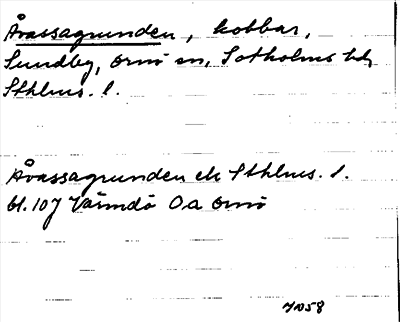 Åvassagrunden, kobbar,
Sundby, Ornö sn, Sotholms hd,
Sthlms. l.
Åvassagrunden ek Sthlms. l.
bl. 107 Värmdö Oa Ornö
1958